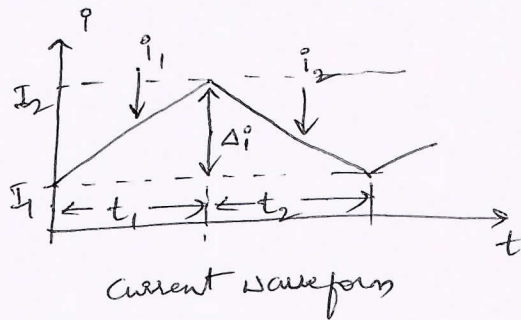 i
i₁
i₂
I₂
Δi
I₁
t₁
t₂
t
Current Waveform